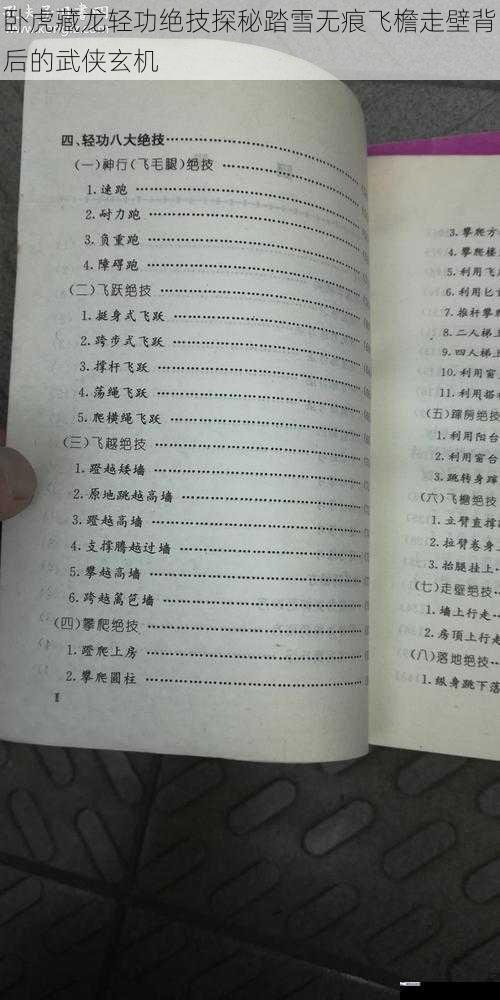 卧虎藏龙轻功绝技探秘踏雪无痕飞檐走壁背
后的武侠玄机
四、轻功八大绝技
(一)神行(飞毛腿)绝技
1.速跑
2.耐力跑
3.负重跑
4.障碍跑
(二)飞跃绝技
1.挺身式飞跃
2.跨步式飞跃
3.撑杆飞跃
4.荡绳飞跃
5.爬横绳飞跃
(三)飞越绝技
1.蹬越矮墙
2.原地跳越高墙
3.蹬越高墙
4.支撑腾越过墙
5.攀越高墙
6.跨越篱笆墙
(四)攀爬绝技
1.蹬爬上房
2.攀爬圆柱
II
3.攀爬方
4.攀爬楼
5.利用飞
6.利用匕
7.推杆攀
8.二人梯
9.四人梯上
10.利用窗
11.利用搭
(五)蹿房绝技
1.利用阳台
2.利用窗台
3.跳转身蹿
(六)飞檐绝技
1.立臂直撑
2.拉臂卷身
3.抬腿挂上
(七)走壁绝技
1.墙上行走
2.房顶上行走
(八)落地绝技
1.纵身跳下落